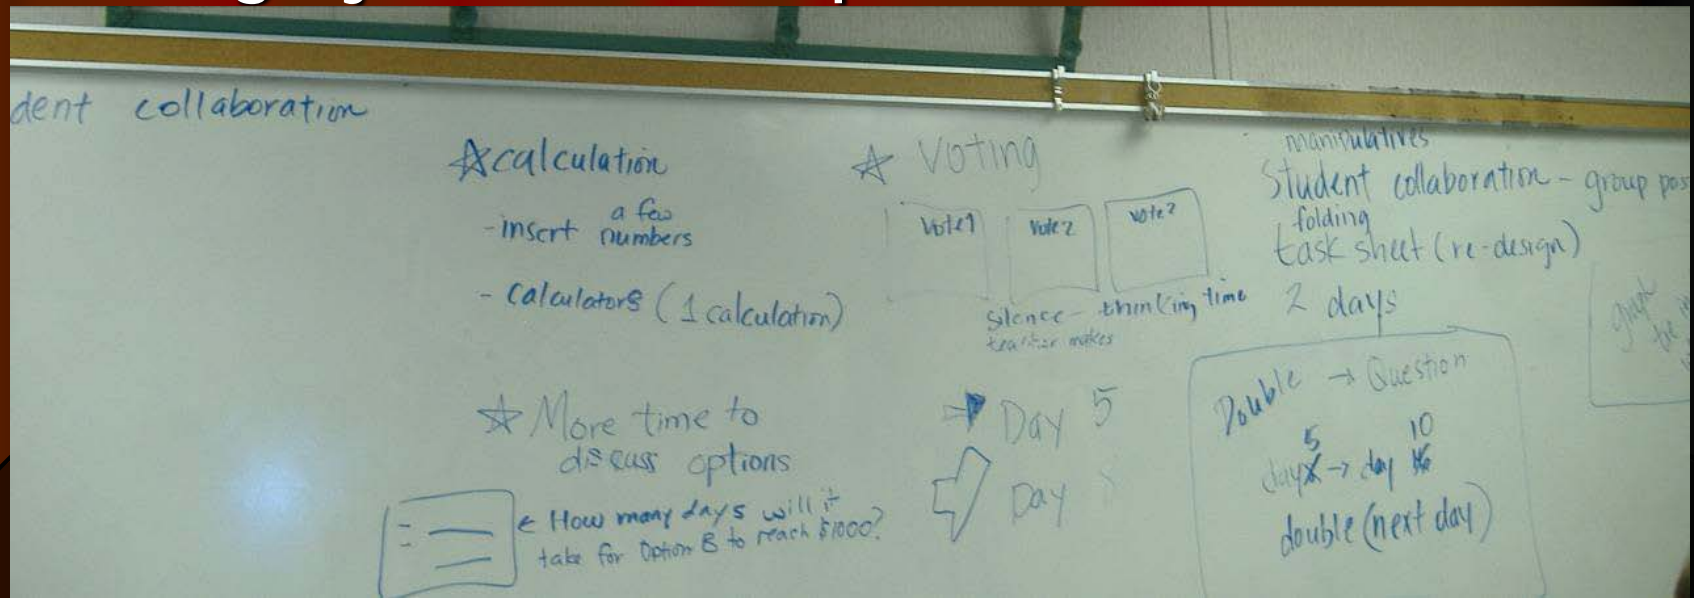 dent collaboration
☆ calculation
- insert a few numbers
- calculators (1 calculation)
☆ More time to
discuss options
← How many days will it
take for Option B to reach $1000?
☆ Voting
Vote1 Vote2 Vote?
Silence - thinking time
teacher makes
→ Day 5
Day
manipulatives
Student collaboration - group pos
folding
task sheet (re-design)
2 days
Double → Question
5 10
day → day
double (next day)
graph